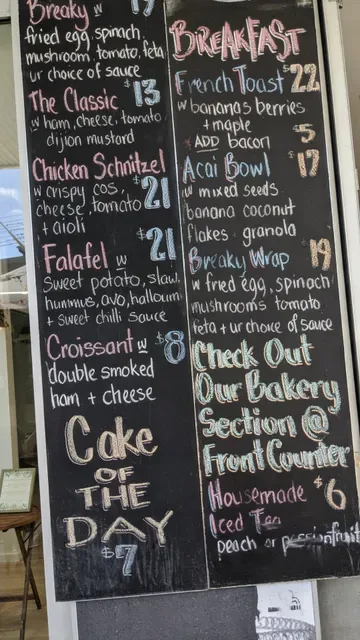 Breaky w 17
fried egg, spinach,
mushroom, tomato, feta
ur choice of sauce
The Classic $13
w ham, cheese, tomato
dijion mustard
Chicken Schnitzel
w crispy cos, $21
cheese, tomato
+ aioli
$21
Falafel w
sweet potato, slaw,
hummus, avo, halloumi
+ sweet chilli sauce
Croissant w $8
double smoked
ham + cheese
Cake
OF
THE
DAY
$7
BREAKFAST
French Toast $22
w bananas berries
+ maple
* ADD bacon $5
Acai Bowl $17
w mixed seeds
banana coconut
flakes granola
Breaky Wrap 19
w fried egg, spinach
mushrooms tomato
feta + ur choice of sauce
Check Out
Our Bakery
Section @
Front Counter
Housemade $6
Iced Tea
peach or passionfruit